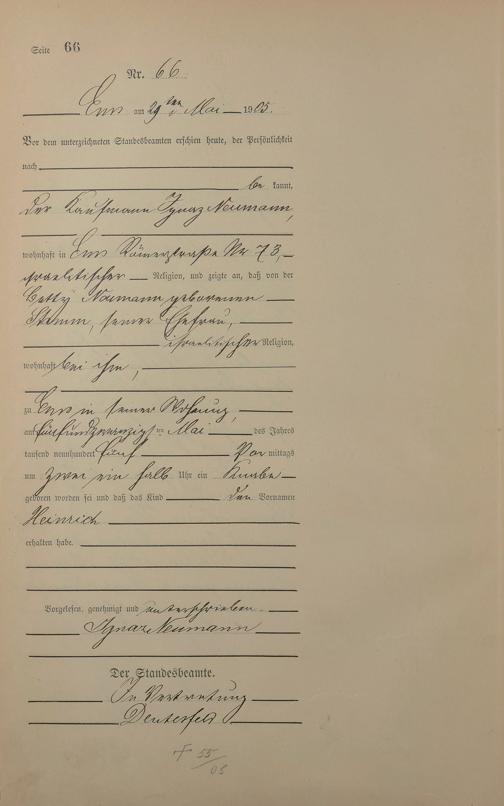 Seite 66
Nr. 66
Ems am 29ten Mai 1905.
Vor dem unterzeichneten Standesbeamten erschien heute, der Persönlichkeit
nach
be kannt,
der Kaufmann Ignaz Neumann,
wohnhaft in Ems Römerstraße Nr. 73,
israelitischer Religion, und zeigte an, daß von der
Betty Neumann geborenen
Stamm, seiner Ehefrau,
israelitischer Religion,
wohnhaft bei ihm,
zu Ems in seiner Wohnung,
am fünfundzwanzigsten Mai des Jahres
tausend neunhundert fünf Vor mittags
um zwei ein halb Uhr ein Knabe
geboren worden sei und daß das Kind den Vornamen
Heinrich
erhalten habe.
Vorgelesen, genehmigt und unterschrieben
Ignaz Neumann
Der Standesbeamte.
In Vertretung
+ 55/05